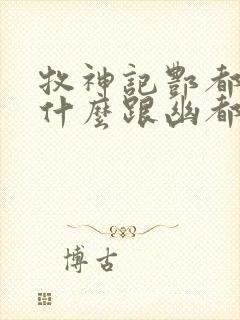 牧神記酆都
什麼跟幽都
博古